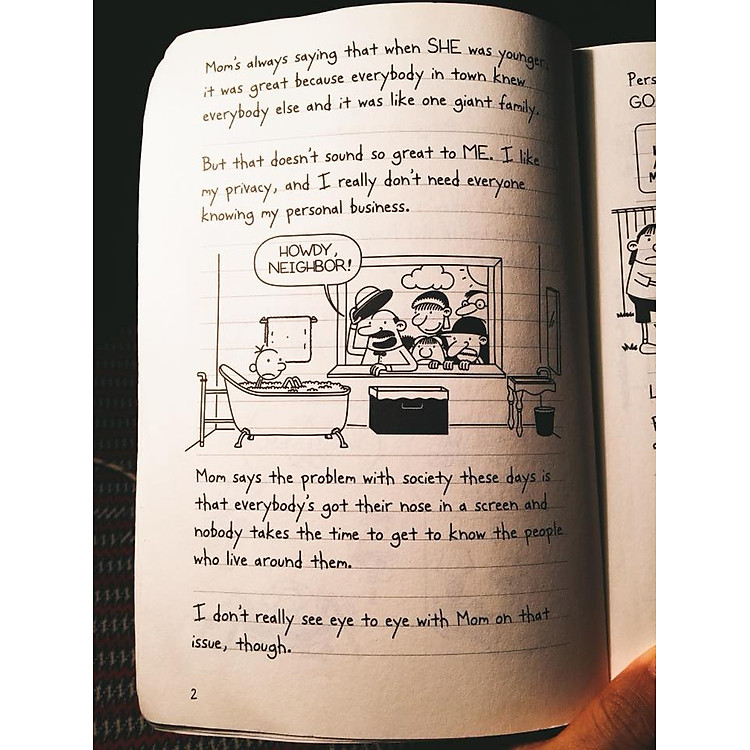 Mom's always saying that when SHE was younger,
it was great because everybody in town knew
everybody else and it was like one giant family.
But that doesn't sound so great to ME. I like
my privacy, and I really don't need everyone
knowing my personal business.
HOWDY,
NEIGHBOR!
Mom says the problem with society these days is
that everybody's got their nose in a screen and
nobody takes the time to get to know the people
who live around them.
I don't really see eye to eye with Mom on that
issue, though.
2
Pers
GO